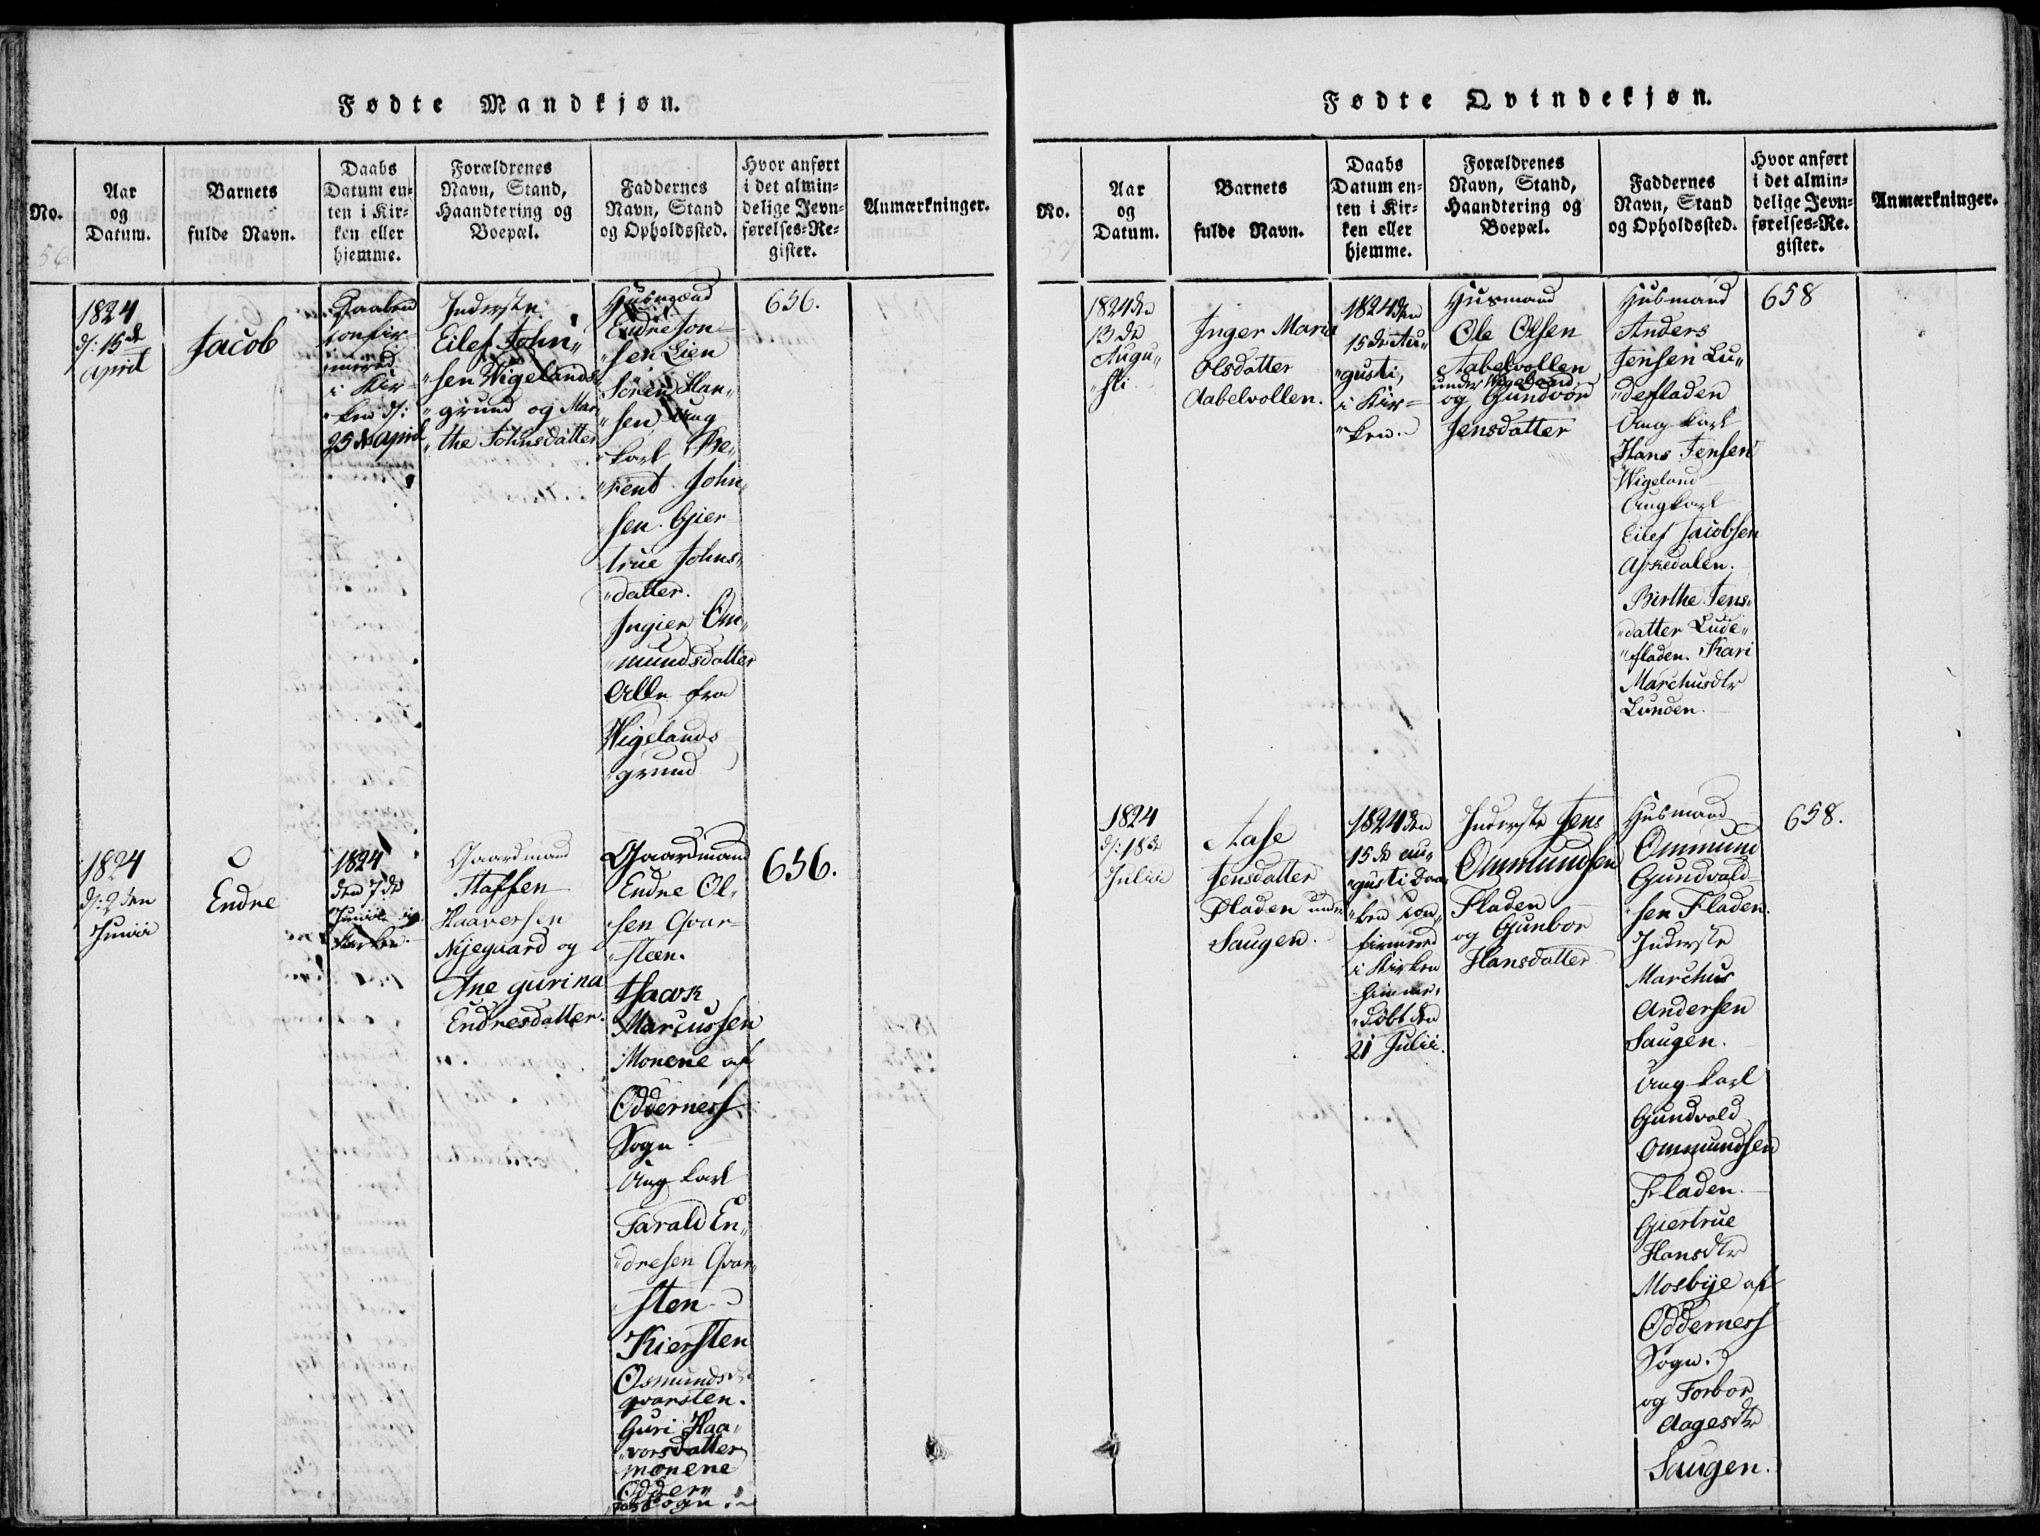 Fødte Mandkjøn.
No.
Aar
og
Datum.
Barnets
fulde Navn.
Daabs
Datum en-
ten i Kir-
ken eller
hjemme.
Forældrenes
Navn, Stand,
Haandtering og
Boepæl.
Faddernes
Navn, Stand
og Opholdssted.
Hvor anført
i det almin-
delige Jevn-
førelses-Re-
gister.
Anmærkninger.
56
1824
d: 15de
April
Jacob
Daaben
confir
mered
i Kir-
ken d:
25de April
Inderste
Eilef John„
„sen Wigelands
„grund og Mar„
„the Johnsdatter
Husmænd
Endre Jon
„sen Lien
Sören Han„
„sen Ung
karl Be„
„rent John„
sen. Gjer
true Johns„
„datter.
Ingier Om„
„mundsdatter
Alle fra
Wigelands
„grund
656.
1824
d: 2den
Junii
Endre
1824
den 7de
Junii i
Kirken.
Gaardmand
Staffen
Haaversen
Nijegaard og
Ane gurina
Endresdatter.
Gaardmand
Endre Ol„
„sen Qvar
„steen.
Isack
Marcussen
Monene af
Odderness
Sogn
Ung karl
Tarald En„
„dresen Qvar„
„sten
Kiersten
Osmundsd
qvarsten.
Guri Haa„
„vorsdatter
monene
Oddern
Sogn
656.
Fødte Qvindekjøn.
No.
Aar
og
Datum.
Barnets
fulde Navn.
Daabs
Datum en-
ten i Kir-
ken eller
hjemme.
Forældrenes
Navn, Stand,
Haandtering og
Boepæl.
Faddernes
Navn, Stand
og Opholdssted.
Hvor anført
i det almin-
delige Jevn-
førelses-Re-
gister.
Anmærkninger.
1824 den
13de
Augu„
„sti
Inger Maria
Olsdatter
Aabelvollen.
1824 den
15de Au„
„gusti,
i Kir=
„ken.
Husmand
Ole Olsen
Aabelvollen
under Wigeland
og Gundvor
Jensdatter
Husmand
Anders
Jensen Lu„
„defladen
Ung karl
Hans Jensen
Wigeland
Ungkarl
Eilef Jacobsen
Askedalen.
Birthe Jens„
„datter Lude„
„fladen. Kari
Marchusdtr
Lunden.
658
1824
d: 18de
Julii
Aase
Jensdatter
Fladen under
Saugen.
1824 den
15de Au„
„gusti Daa„
„ben con„
firmered
i Kirken
hjemme„
„döbt den
21 Julii.
Inderste Jens
Ommundsen
Fladen
og Gunbor
Hansdatter
Husmand
Ommund
Gundvald
„sen Fladen.
Inderste
Marchus
Andersen
Saugen.
Ung karl
Gundvald
Ommundsen
Fladen.
Giertrue
Hansdtr
Mosbye af
Odderness
Sogn.
og Torbor
Aagesdtr
Saugen.
658.